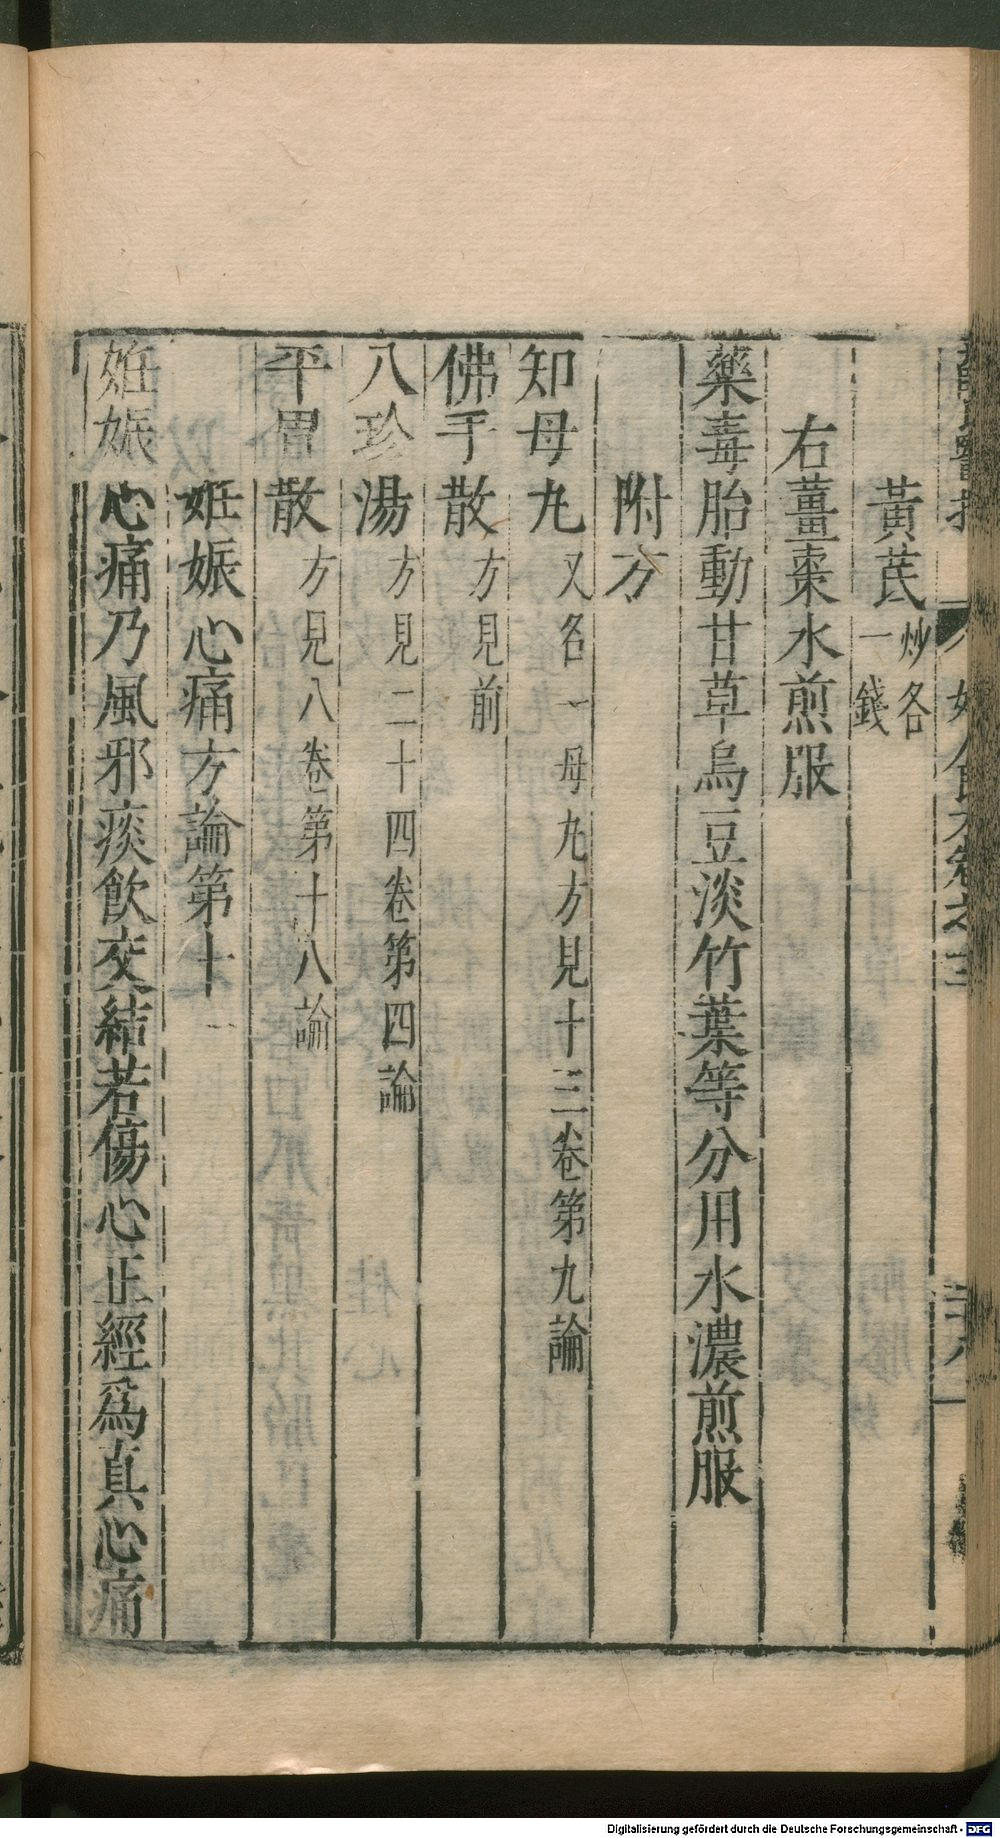 黃芪炒各一錢
右薑棗水煎服
藥毒胎動甘草烏豆淡竹葉等分用水濃煎服
附方
知母丸又各一母丸方見十三卷第九論
佛手散方見前
八珍湯方見二十四卷第四論
平胃散方見八卷第十八論
姙娠心痛方論第十
姙娠心痛乃風邪痰飲交結若傷心正經爲真心痛
Digitalisierung gefördert durch die Deutsche Forschungsgemeinschaft - DFG